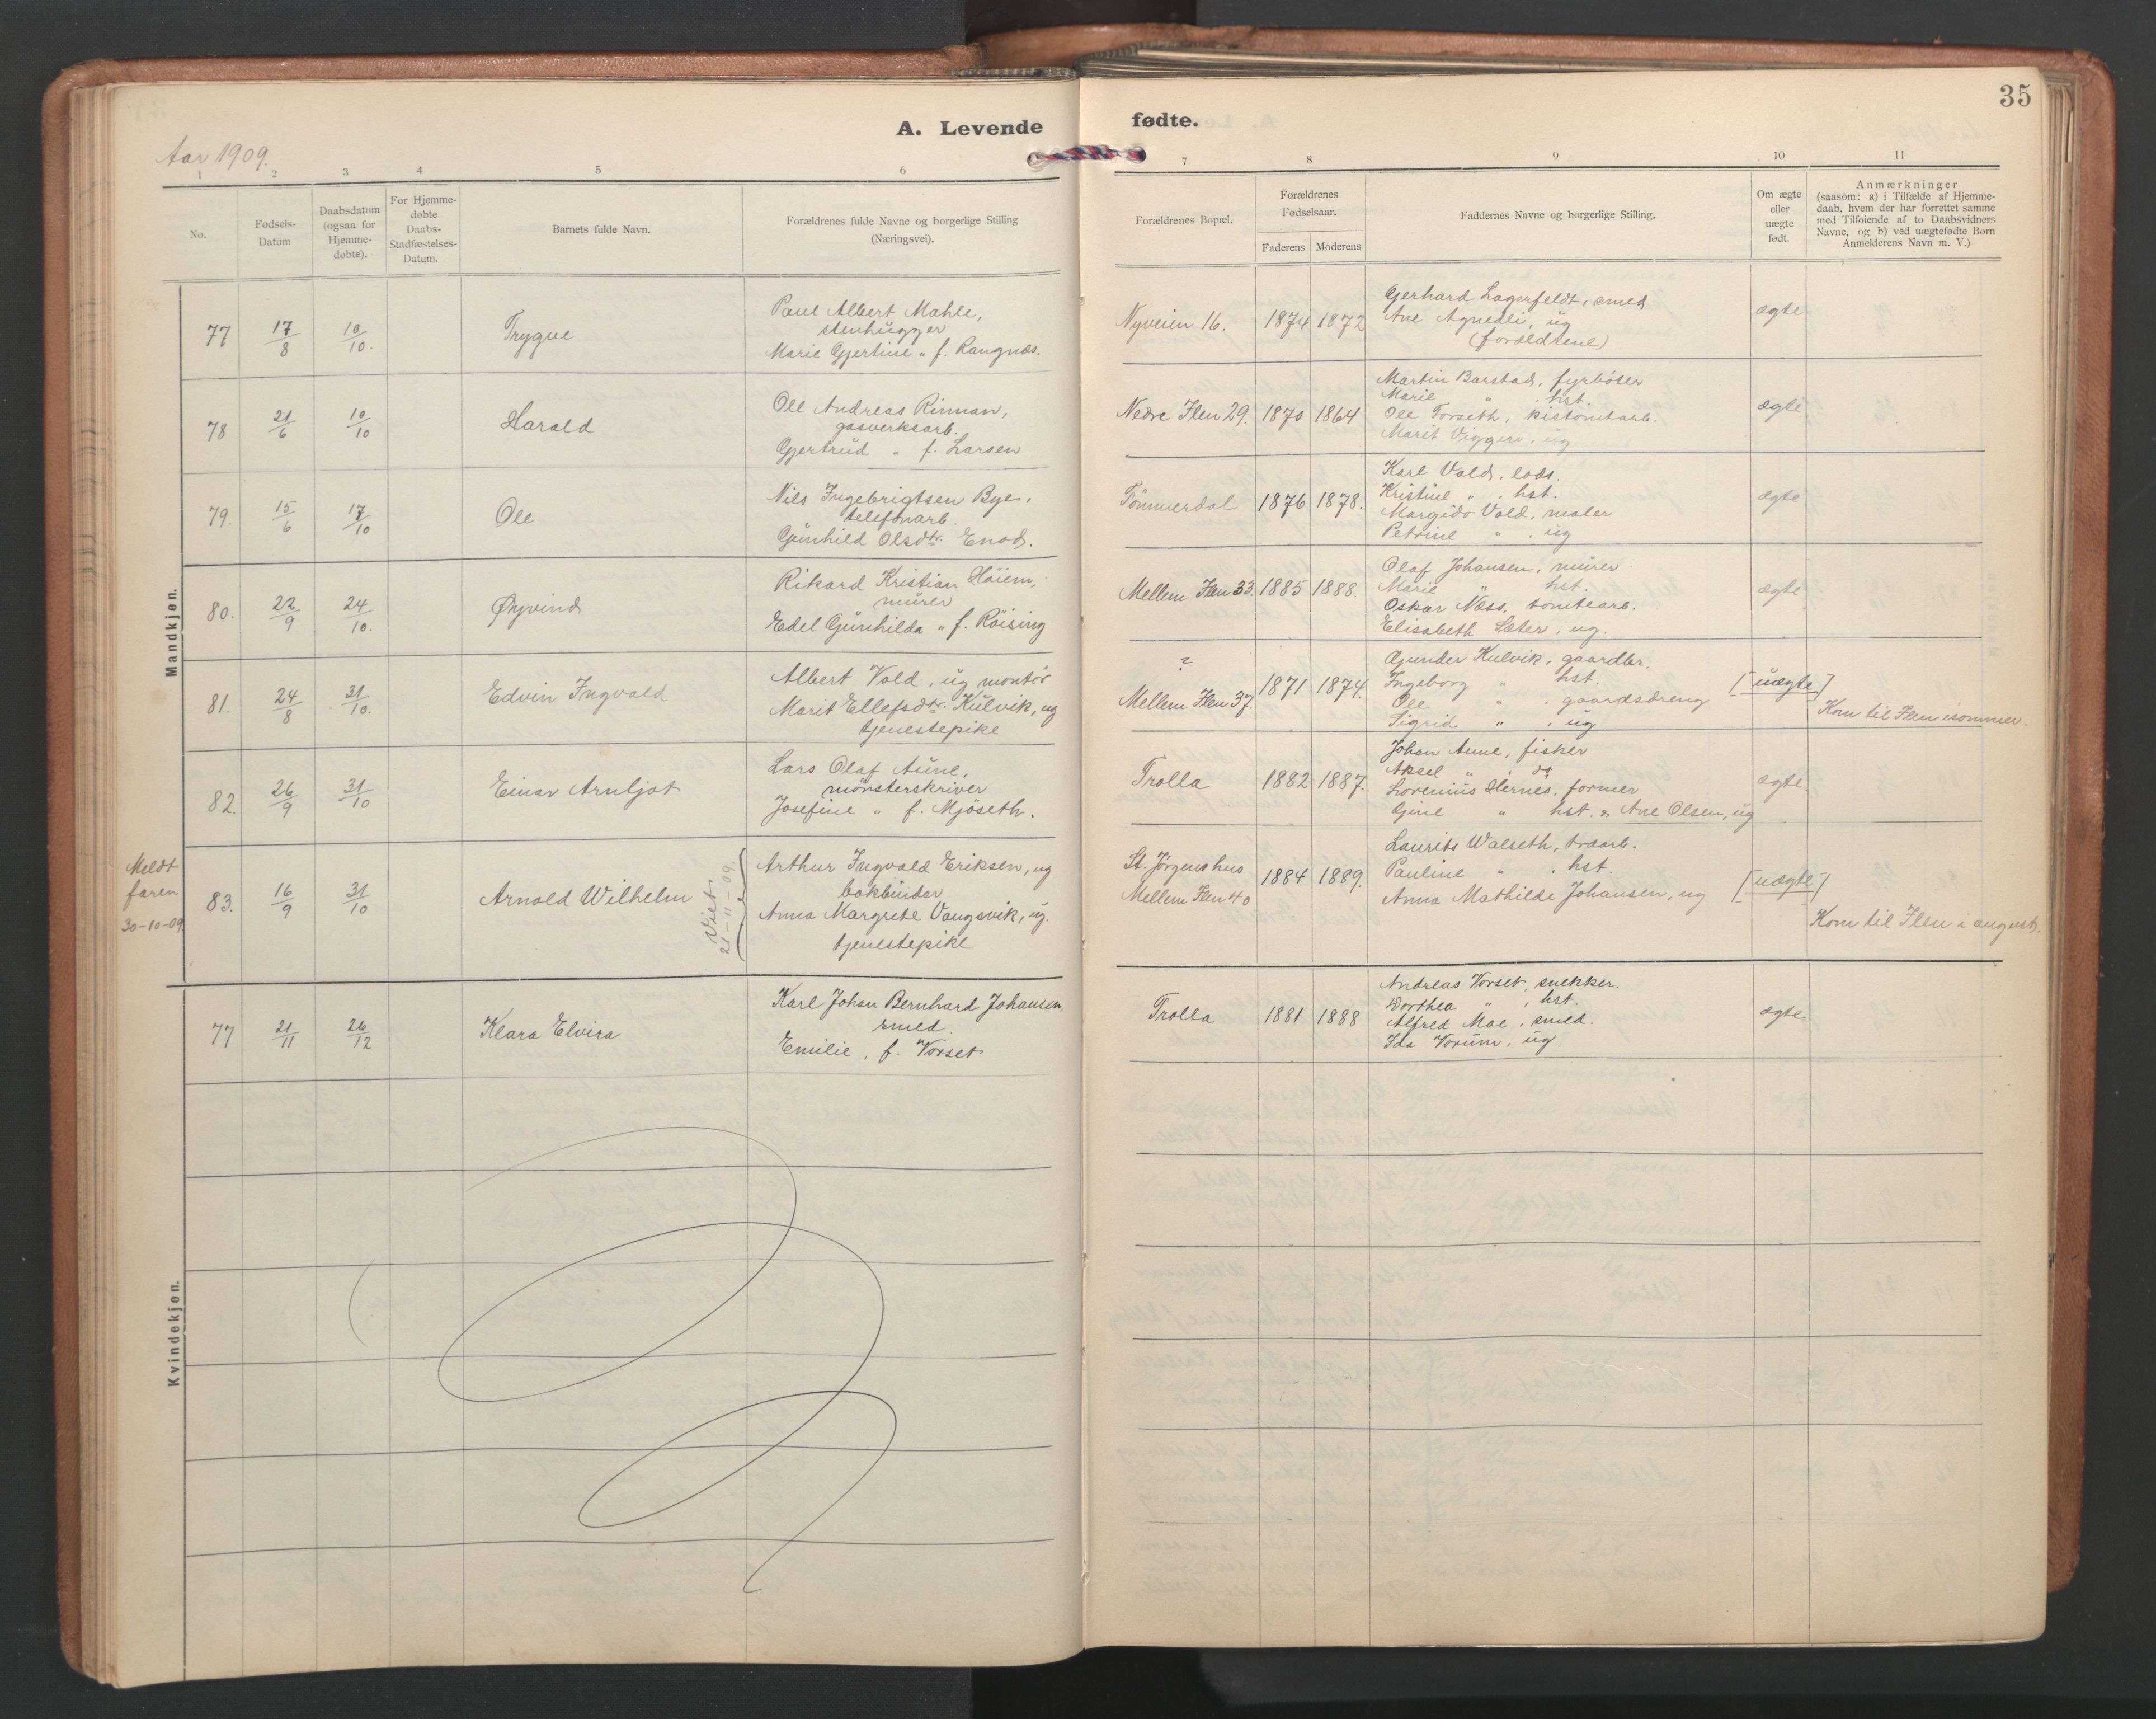 35
A. Levende fødte.
Aar 1909.
1 2 3 4 5 6 7 8 9 10 11
No.
Fødsels-
Datum
Daabsdatum
(ogsaa for
Hjemme-
døbte).
For Hjemme-
døbte
Daabs-
Stadfæstelses-
Datum.
Barnets fulde Navn.
Forældrenes fulde Navne og borgerlige Stilling
(Næringsvei).
Forældrenes Bopæl.
Forældrenes
Fødselsaar.
Faderens Moderens
Faddernes Navne og borgerlige Stilling.
Om ægte
eller
uægte
født.
Anmærkninger
(saasom: a) i Tilfælde af Hjemme-
daab, hvem der har forrettet samme
med Tilføiende af to Daabsvidners
Navne, og b) ved uægtefødte Børn
Anmelderens Navn m. V.)
Mandkjøn.
77 17/8 10/10. Trygve
Paul Albert Mahle,
stenhugger
Marie Gjertine " f. Rangnæs.
Nyveien 16. 1874 1872
Gerhard Lagerfeldt, smed
Ane Agnedli, ug
(forældrene)
ægte
78 21/6 10/10 Harald
Ole Andreas Rinnan,
gasverksarb.
Gjertrud " f. Larsen
Nedre Ilen 29. 1870 1864
Martin Barstad, fyrbøter
Marie " hst.
Ole Forseth, kistomtarb.
Marit Viggen, ug
ægte
79. 15/6 17/10 Ole
Nils Ingebrigtsen Bye,
telefonarb.
Gunhild Olsdtr. Enod.
Tömmerdal 1876 1878.
Karl Vold, lods.
Kristine " , hst.
Margido Vold, maler
Petrine " , ug
ægte
80. 22/9 24/10. Øyvind
Rikard Kristian Höiem,
murer
Edel Gunhilda " f. Röising
Mellem Ilen 33. 1885 1888.
Olaf Johansen, murer
Marie " hst.
Oskar Næss, tomtearb.
Elisabeth Sæter, ug.
ægte
81. 24/8 31/10. Edvin Ingvald
Albert Vold, ug montör
Marit Ellefsdtr. Kulvik, ug
tjenestepike
?
Mellem Ilen 37. 1871 1874.
Gunder Kulvik, gaardbr.
Ingeborg " hst.
Ole " , gaardsdreng
Sigrid " , ug
[uægte]
Kom til Ilen isommer.
82. 26/9 31/10 Einar Arnljot
Lars Olaf Aune,
mönsterskriver
Josefine " f. Mjöseth.
Trolla 1882 1887.
Johan Aune, fisker
Aksel " , do
Lorenius Hernes, former
Gjine " hst. & Ane Olsen, ug
ægte.
Meldt
faren
30-10-09.
83. 16/9 31/10 Arnold Wilhelm
Viet
21-11-09.
Arthur Ingvald Eriksen, ug
bokbinder
Anna Margrete Vaugsvik, ug.
tjenestepike
St. Jørgens hus
Mellem Ilen 40
1884 1889.
Laurits Walseth, træarb.
Pauline " , hst.
Anna Mathilde Johansen, ug
[uægte]
Kom til Ilen i august.
Kvindekjøn.
77 21/11 26/12 Klara Elvira
Karl Johan Bernhard Johansen
smed.
Emilie, f. Vorset
Trolla 1881 1888
Andreas Vorset, snekker.
Dorthea " , hst.
Alfred Moe, smed.
Ida Vorum, ug.
ægte